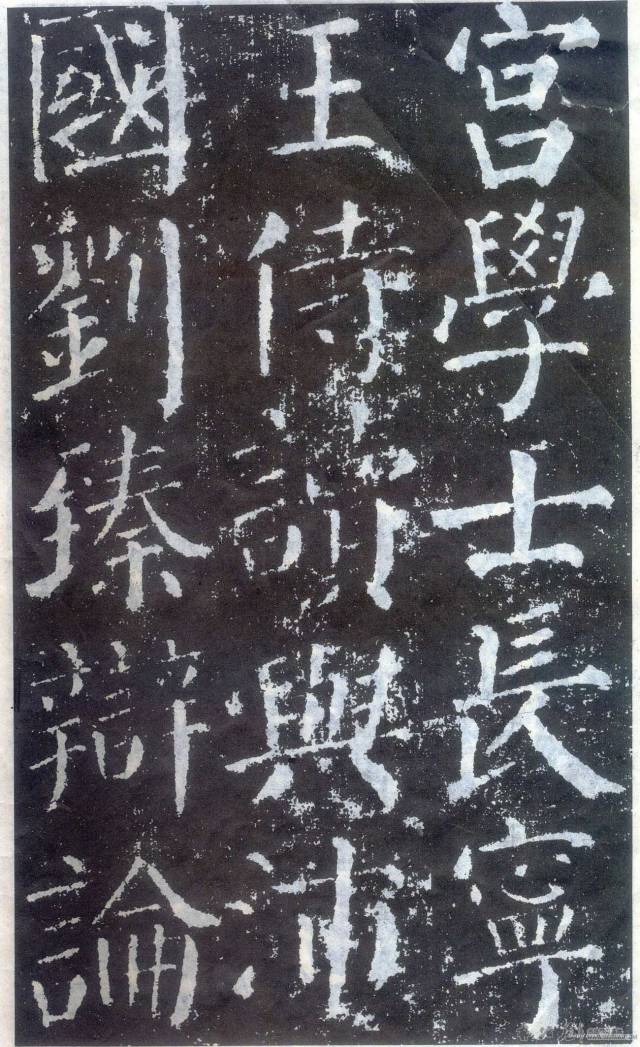 宮學士長寧
王侍講與沛
國劉臻辯論